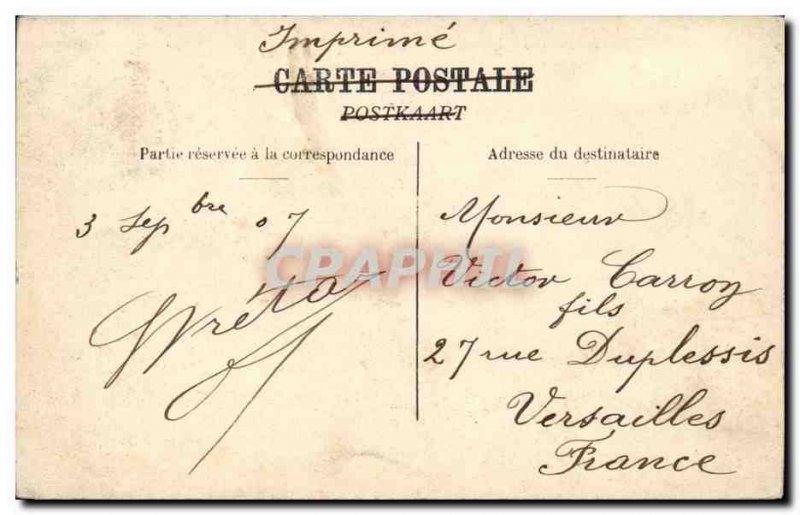 Imprimé
CARTE POSTALE
POSTKAART
Partie réservée à la correspondance
Adresse du destinataire
3 Sepbre 07
Monsieur
Victor Carroy
fils
27 rue Duplessis
Versailles
France
CPAPHIL